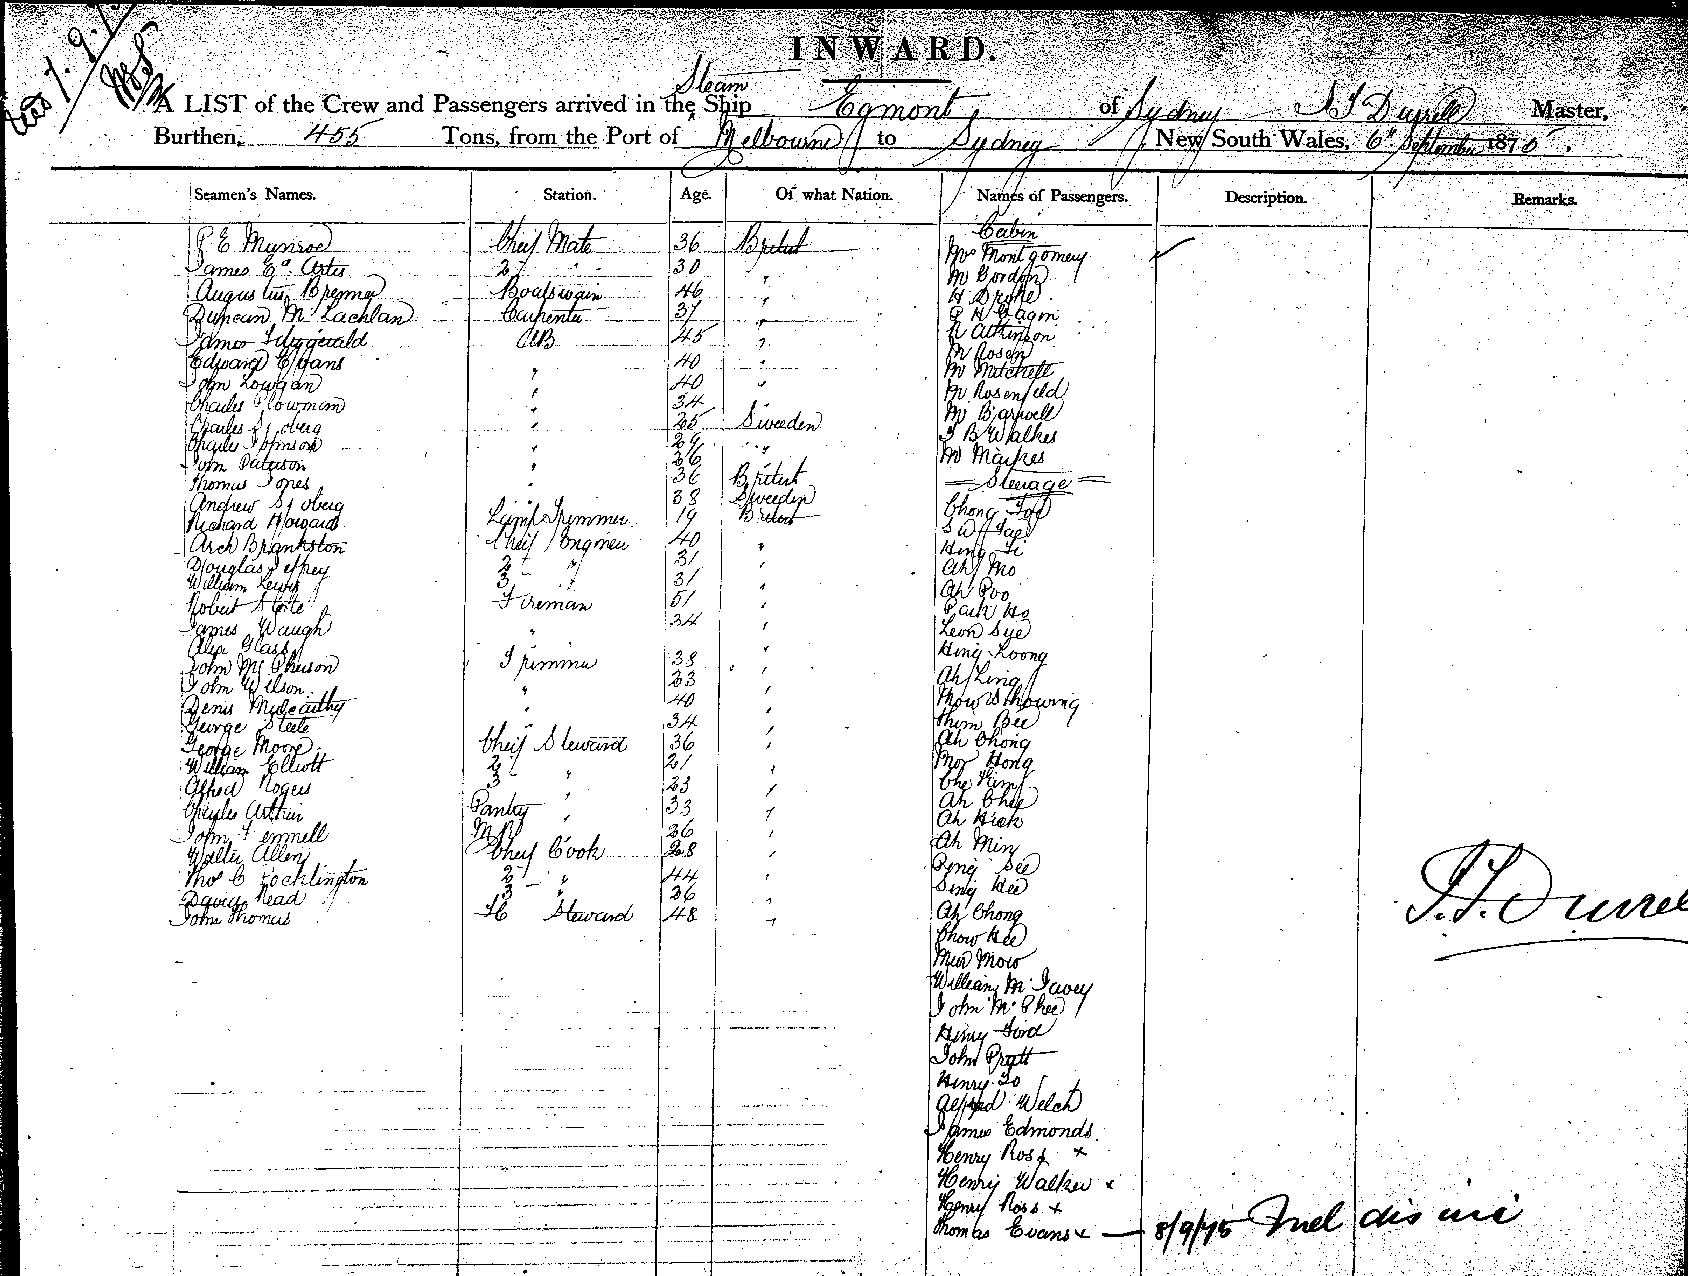 INWARD.
Steam
A LIST of the Crew and Passengers arrived in the Ship Egmont of Sydney Durrell Master,
Burthen, 455 Tons, from the Port of Melbourne to Sydney New South Wales, 6th September 1875.
Seamen's Names. Station. Age. Of what Nation. Names of Passengers. Description. Remarks.
Cabin
E Munroe Cheif Mate 36 British
Mrs Montgomery
James Artis 2 " 30 "
M Gordon
Augustus Boatswain 46 "
H Drake
Duncan McLachlan Carpenter 37 "
James Fitzgerald AB 45 "
R Atkinson
Edward Evans " 40 "
M Rosen
M Mitchell
John Lowgan " 40 "
M Rosenfeld
Charles Plowman " 34 "
M Barwell
Charles Sjoberg " 25 Sweeden
J B Walker
Charles Johnson " 29 "
M Maikes
John Paterson " 26 "
Thomas Jones " 36 British
Steerage
Andrew Sjoberg " 38 Sweeden
Chong Foo
Richard Howard Lamp Trimmer 19 British
Arch Brankston Cheif Engineer 40 "
Hing Ti
Douglas Jeffrey 2 " 31 "
Ah Mo
William Lewis 3 " 31 "
Ah Poo
Robert Fireman 51 "
James Waugh " 34 "
Leon Sye
Alex Glass "
Hing Koong
John McPherson Trimmer 38 "
Ah Ling
John Wilson " 23 "
Mow Showing
Denis Mulcarthy " 40 "
Thim Bee
George Steele " 34 "
Ah Chong
George Moore Cheif Steward 36 "
Moy Hong
William Elliott 2 " 21 "
Che Kim
Alfred Rogers 3 " 23 "
Ah Chee
Charles Arthur Pantry " 33 "
Ah Hick
John Fennell 26 "
Ah Min
Walter Allen Cheif Cook 28 "
See
Thos C Pocklington 2 " 44 "
Sing Hee
David Read 3 " 36 "
John Thomas Steward 48 "
Ah Chong
Chow Hee
Mun Mow
William McTavey
John McPhee
Henry Ford
John Pratt
Henry To
Alfred Welch
James Edmonds.
Henry Ross x
Henry Walker x
Henry Ross x
Thomas Evans x — 8/9/75
Durrell